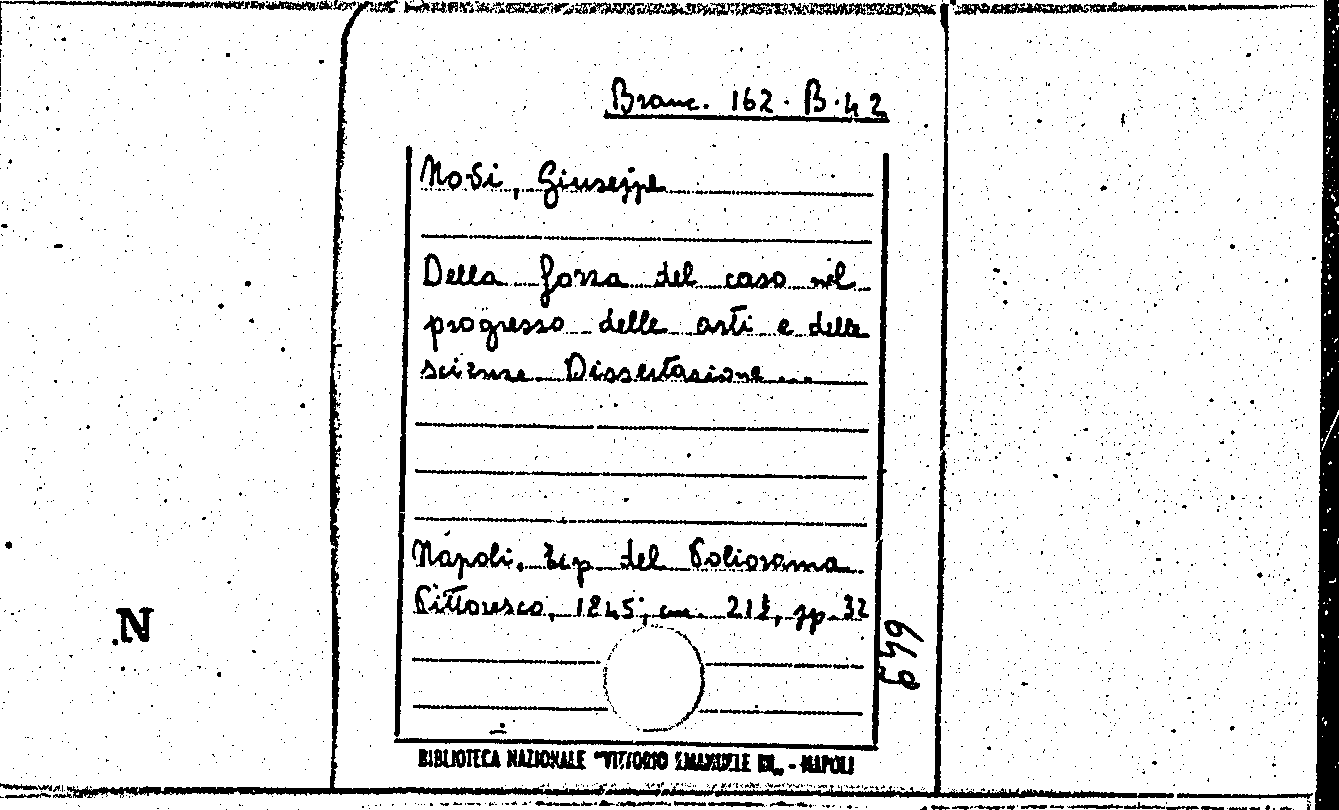 Branc. 162. B. 42
Nobi, Giuseppe
Della forza del caso nel
progresso delle arti e delle
scienze. Dissertazione ...
Napoli, Tip. del Poliorama
Pittoresco, 1845; cm. 21½, pp. 32
649
N
BIBLIOTECA NAZIONALE "VITTORIO EMANUELE III„ - NAPOLI